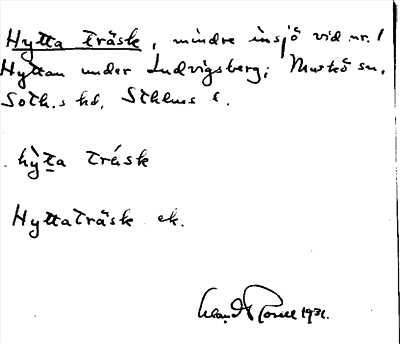 Hytta träsk, mindre insjö vid nr. 1
Hyttan under Ludvigsberg; Muskö sn,
Soth.s hd, Sthlms l.
hỳta trásk
Hyttaträsk ek.
1931.